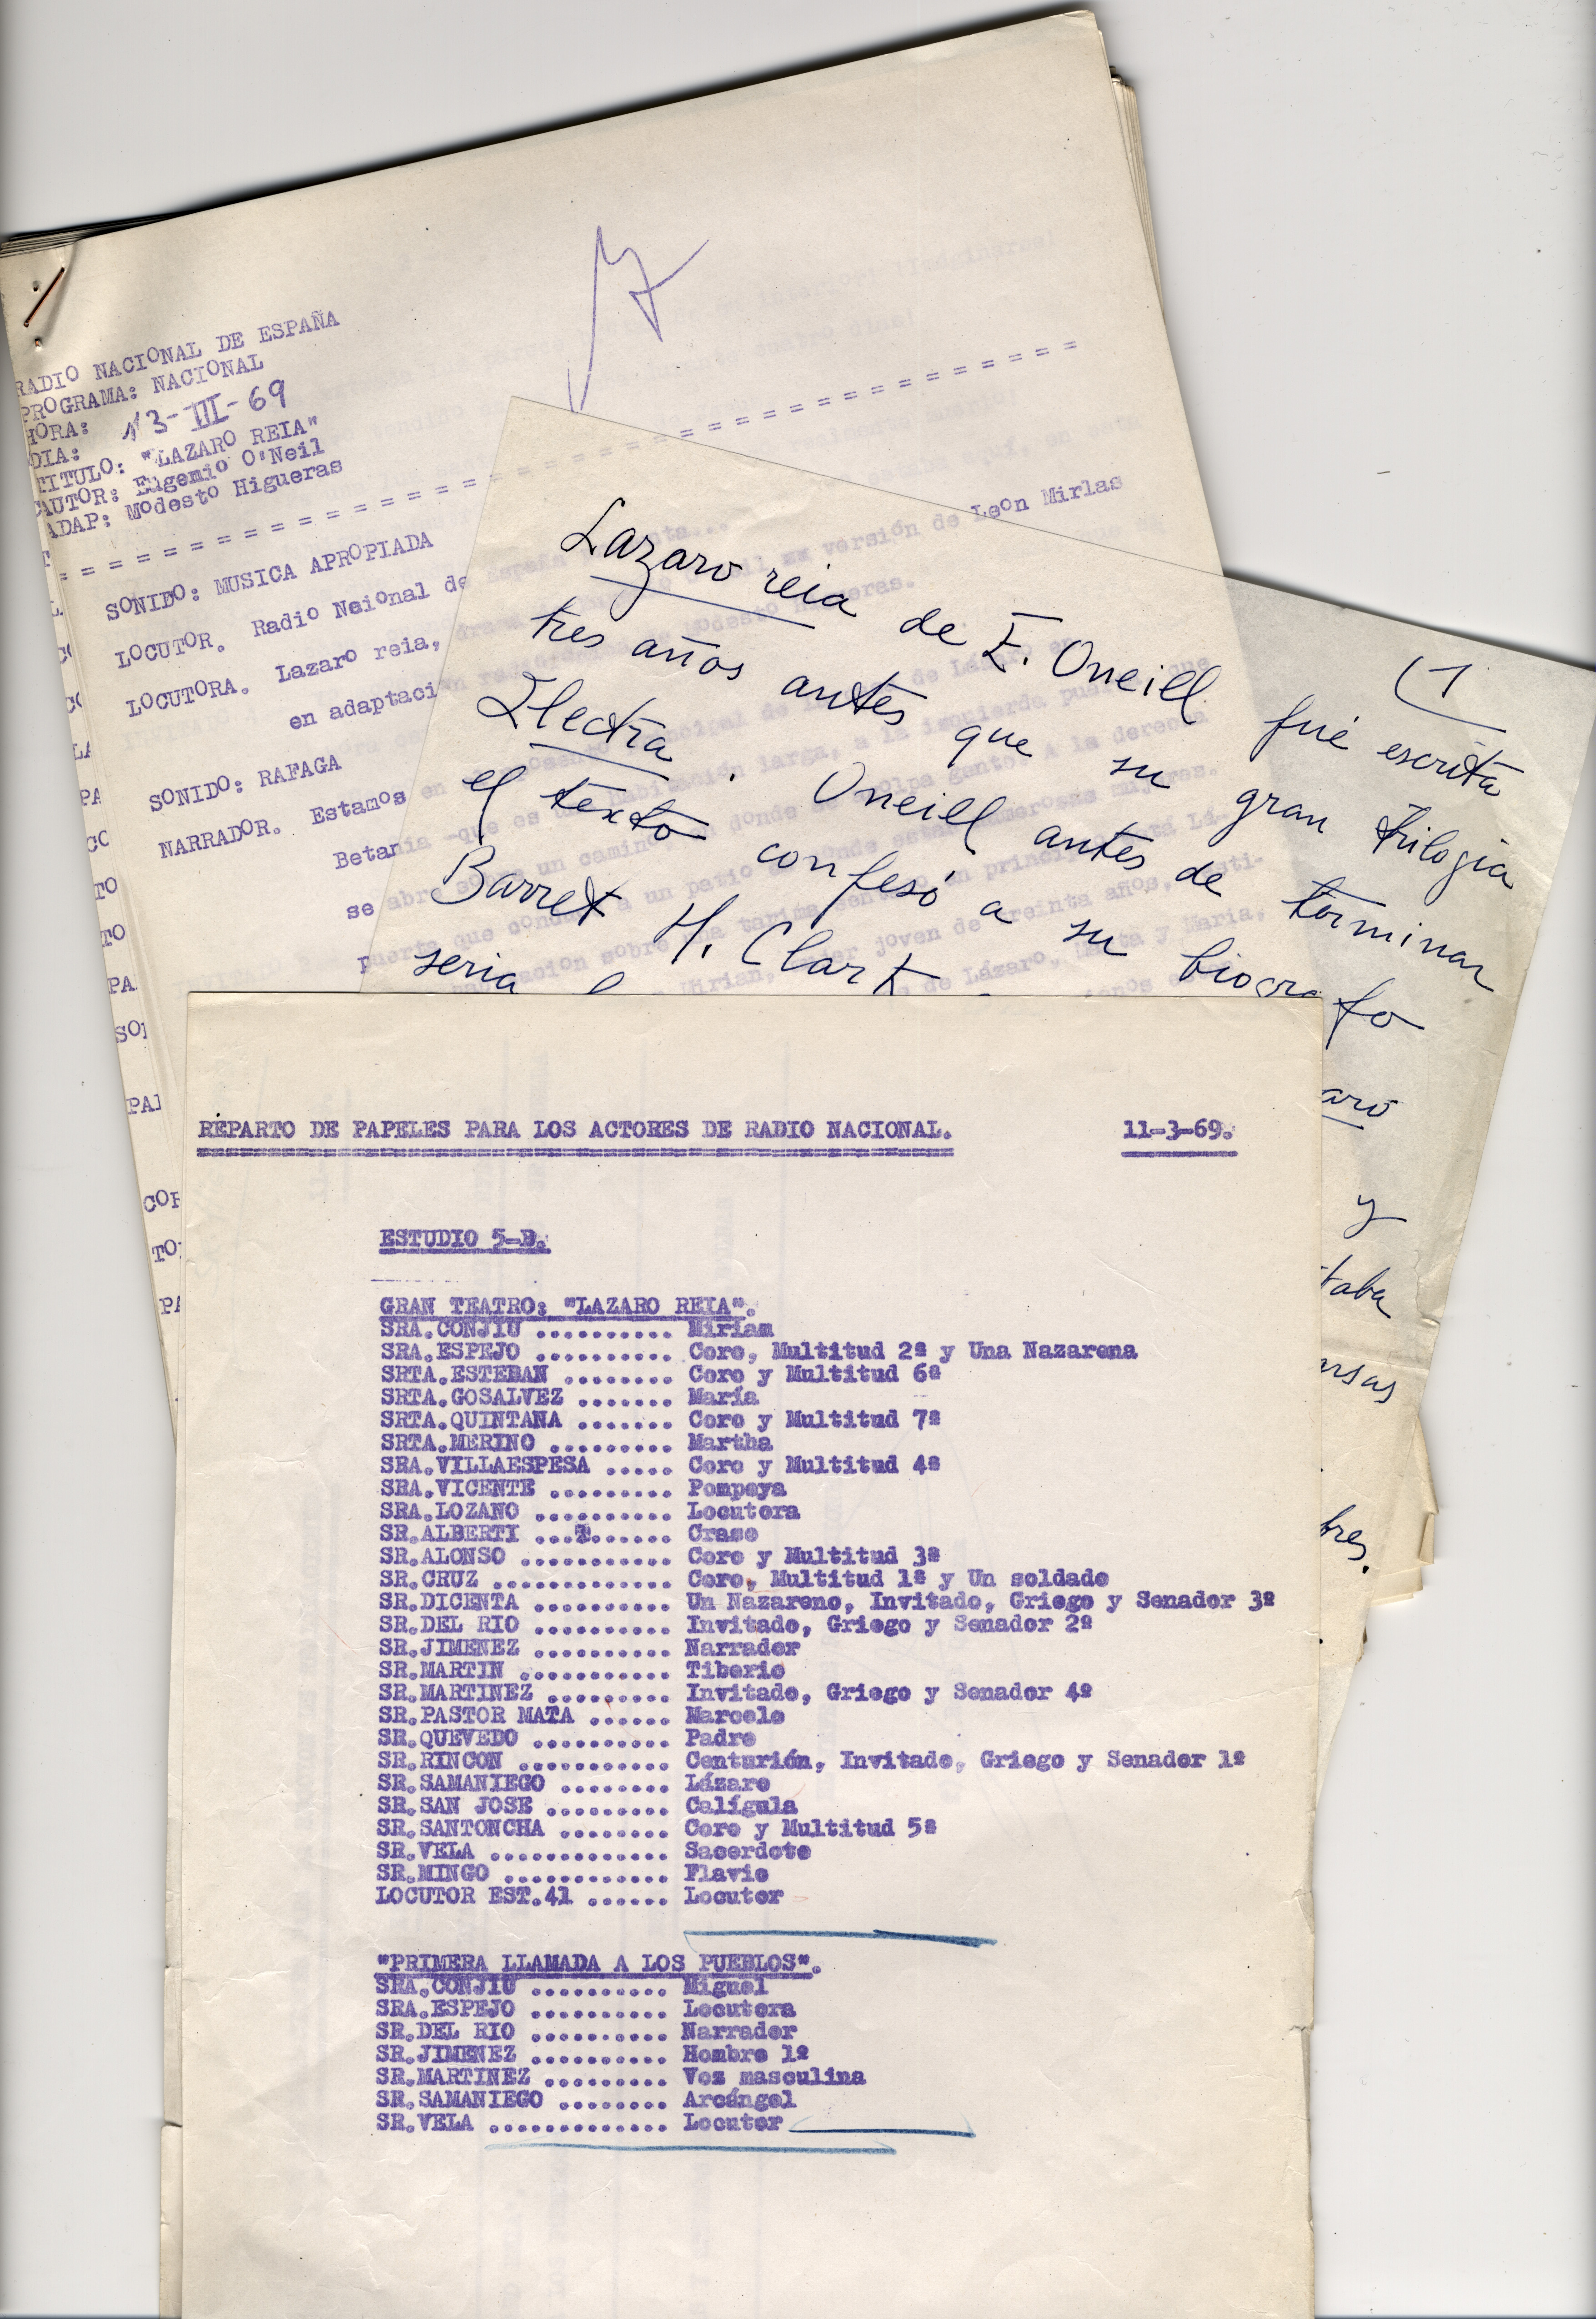 RADIO NACIONAL DE ESPAÑA
PROGRAMA: NACIONAL
HORA:
DIA: 13-III-69
TITULO: "LAZARO REIA"
AUTOR: Eugenio O'Neil
ADAP: Modesto Higueras
= = = = = = = = = = = = = = = = = = = = = = = = = = = = = =
SONIDO: MUSICA APROPIADA
LOCUTOR. Radio Naional de España
LOCUTORA. Lazaro reia, versión de Leon Mirlas
en adaptación Modesto Higueras.
SONIDO: RAFAGA
NARRADOR. Estamos en
Betania -que es una habitación larga, a la izquierda
se abre sobre un camino donde se agolpa gente. A la derecha
puerta que conduce a un patio donde están numerosas mujeres.
joven de treinta años,
de Lázaro, Marta y Maria,
(1
Lazaro reia de E. Oneill fué escrita
tres años antes que su gran trilogia
Electra. Oneill antes de terminar
el texto confesó a su biografo
Barret H. Clark
seria
aro
y
taba
arsas
bres.
REPARTO DE PAPELES PARA LOS ACTORES DE RADIO NACIONAL. 11-3-69.
ESTUDIO 5-B.
GRAN TEATRO: "LAZARO REIA".
SRA.CONJIU .......... Miriam
SRA.ESPEJO .......... Coro, Multitud 2ª y Una Nazarena
SRTA.ESTEBAN ........ Coro y Multitud 6ª
SRTA.GOSALVEZ ....... María
SRTA.QUINTANA ....... Coro y Multitud 7ª
SRTA.MERINO ......... Martha
SRA.VILLAESPESA ..... Coro y Multitud 4ª
SRA.VICENTE ......... Pompeya
SRA.LOZANO .......... Locutora
SR.ALBERTI ...T...... Craso
SR.ALONSO ........... Coro y Multitud 3ª
SR.CRUZ ............. Coro, Multitud 1ª y Un soldado
SR.DICENTA .......... Un Nazareno, Invitado, Griego y Senador 3º
SR.DEL RIO .......... Invitado, Griego y Senador 2º
SR.JIMENEZ .......... Narrador
SR.MARTIN ........... Tiberio
SR.MARTINEZ ......... Invitado, Griego y Senador 4º
SR.PASTOR MATA ...... Marcelo
SR.QUEVEDO .......... Padre
SR.RINCON ........... Centurión, Invitado, Griego y Senador 1º
SR.SAMANIEGO ........ Lázaro
SR.SAN JOSE ......... Calígula
SR.SANTONCHA ........ Coro y Multitud 5ª
SR.VELA ............. Sacerdote
SR.MINGO ............ Flavio
LOCUTOR EST.41 ...... Locutor
"PRIMERA LLAMADA A LOS PUEBLOS".
SRA.CONJIU .......... Miguel
SRA.ESPEJO .......... Locutora
SR.DEL RIO .......... Narrador
SR.JIMENEZ .......... Hombre 1º
SR.MARTINEZ ......... Voz masculina
SR.SAMANIEGO ........ Arcángel
SR.VELA ............. Locutor